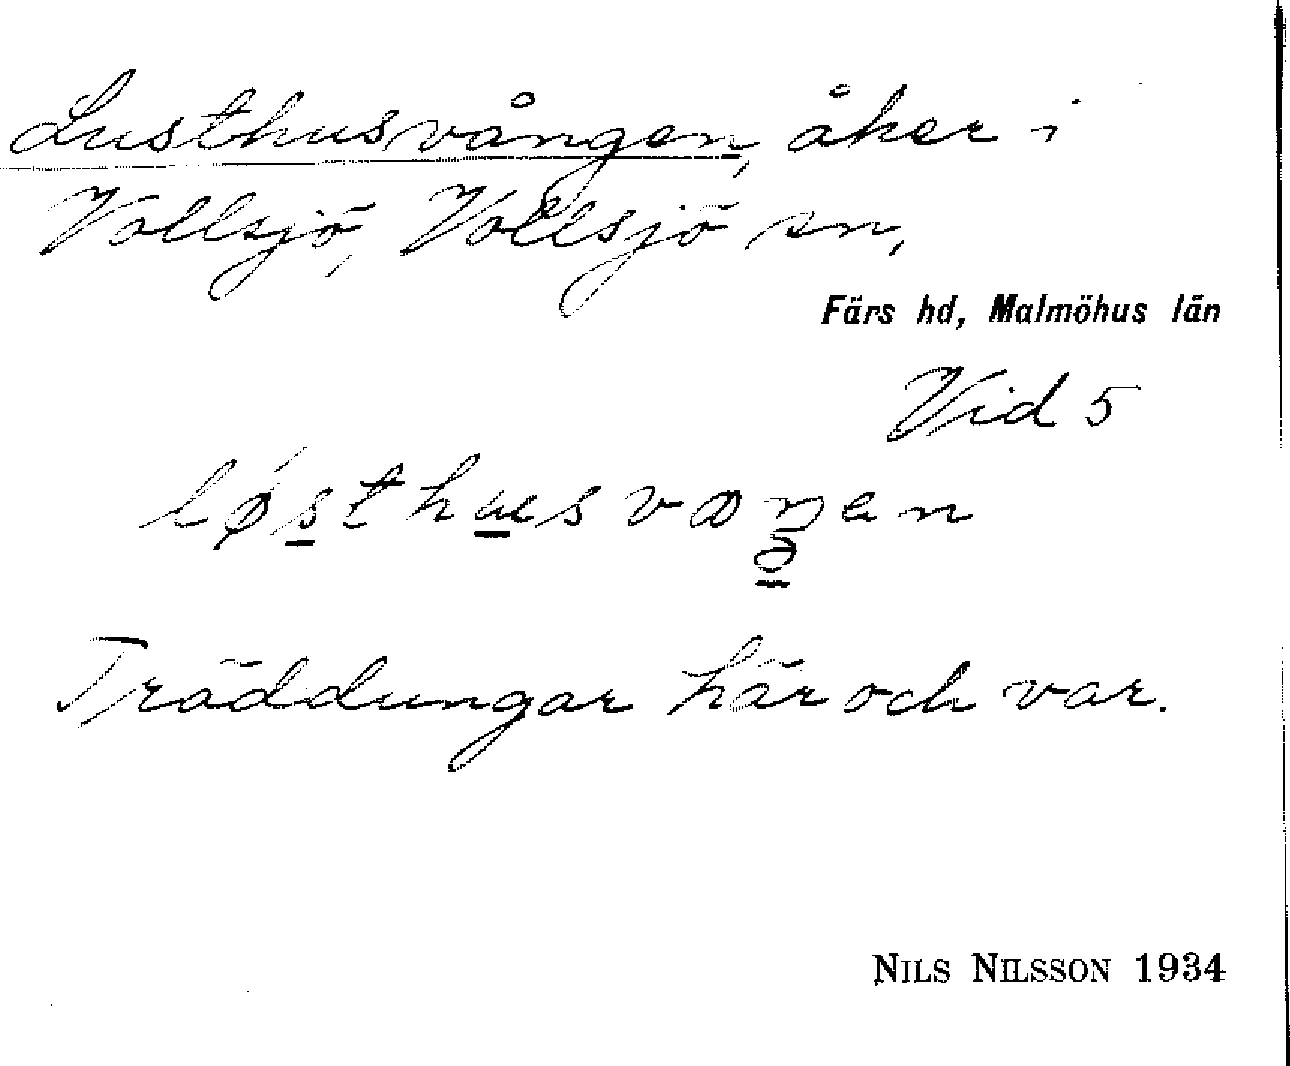 Lusthusvången, åker i
Vollsjö, Vollsjö sn,
Färs hd, Malmöhus län
Vid 5
Träddungar här och var.
NILS NILSSON 1934